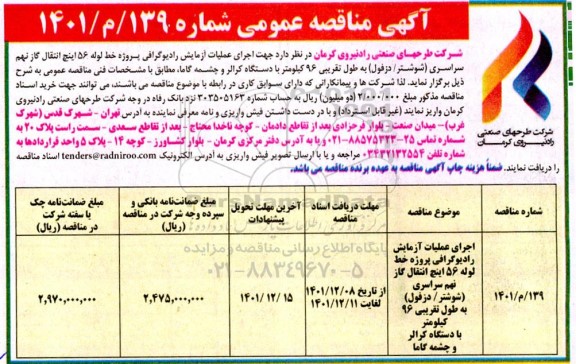 آگهی مناقصه عمومی شماره ۱۳۹/م/۱۴۰۱
شرکت طرحهای صنعتی رادنیروی کرمان در نظر دارد جهت اجرای عملیات آزمایش رادیوگرافی پروژه خط لوله ۵۶ اینچ انتقال گاز نهم
سراسری (شوشتر/ دزفول) به طول تقریبی ۹۶ کیلومتر با دستگاه کرالر و چشمه گاما، مطابق با مشخصات فنی مناقصه عمومی به شرح
ذیل برگزار نماید. لذا شرکت ها و پیمانکارانی که دارای سوابق کاری در رابطه با موضوع مناقصه می باشند، می توانند جهت خرید اسناد
مناقصه مذکور مبلغ ۲/۰۰۰/۰۰۰ (دو میلیون) ریال به حساب شماره ۳۰۳۵۰۵۱۶۳ نزد بانک رفاه در وجه شرکت طرحهای صنعتی رادنیروی
کرمان واریز نمایند (غیر قابل استرداد) و با در دست داشتن فیش واریزی و نامه معرفی نماینده به آدرس تهران - شهرک قدس (شهرک
غرب) – میدان صنعت - بلوار فرحزادی بعد از تقاطع دادمان - کوچه ناخدا محتاج - بعد از تقاطع سعدی - سمت راست پلاک ۲۰ به
شماره تماس ۲۵-۸۸۵۷۵۳۲۳-۰۲۱ و یا به آدرس دفتر مرکزی کرمان - بلوار کشاورز - کوچه ۱۴ - پلاک ۵ واحد قراردادها به
شماره تلفن ۰۳۴۳۲۱۳۲۵۵۴ مراجعه و یا با ارسال تصویر فیش واریزی به آدرس الکترونیک tenders@radniroo.com اسناد مناقصه
را دریافت نمایند. ضمناً هزینه چاپ آگهی مناقصه به عهده برنده مناقصه می باشد.
شرکت طرحهای صنعتی
رادنیروی کرمان
شماره مناقصه
موضوع مناقصه
مهلت دریافت اسناد مناقصه
آخرین مهلت تحویل پیشنهادات
مبلغ ضمانت‌نامه بانکی و سپرده وجه شرکت در مناقصه (ریال)
مبلغ ضمانت‌نامه چک یا سفته شرکت در مناقصه (ریال)
۱۳۹/م/۱۴۰۱
اجرای عملیات آزمایش
رادیوگرافی پروژه خط
لوله ۵۶ اینچ انتقال گاز
نهم سراسری
(شوشتر / دزفول)
به طول تقریبی ۹۶
کیلومتر
با دستگاه کرالر
و چشمه گاما
از تاریخ ۱۴۰۱/۱۲/۰۸
لغایت ۱۴۰۱/۱۲/۱۱
۱۴۰۱/ ۱۲/ ۱۵
۲,۴۷۵,۰۰۰,۰۰۰
۲,۹۷۰,۰۰۰,۰۰۰
پایگاه اطلاع رسانی مناقصه و مزایده
۰۲۱-۸۸۳۴۹۶۷۰-۵